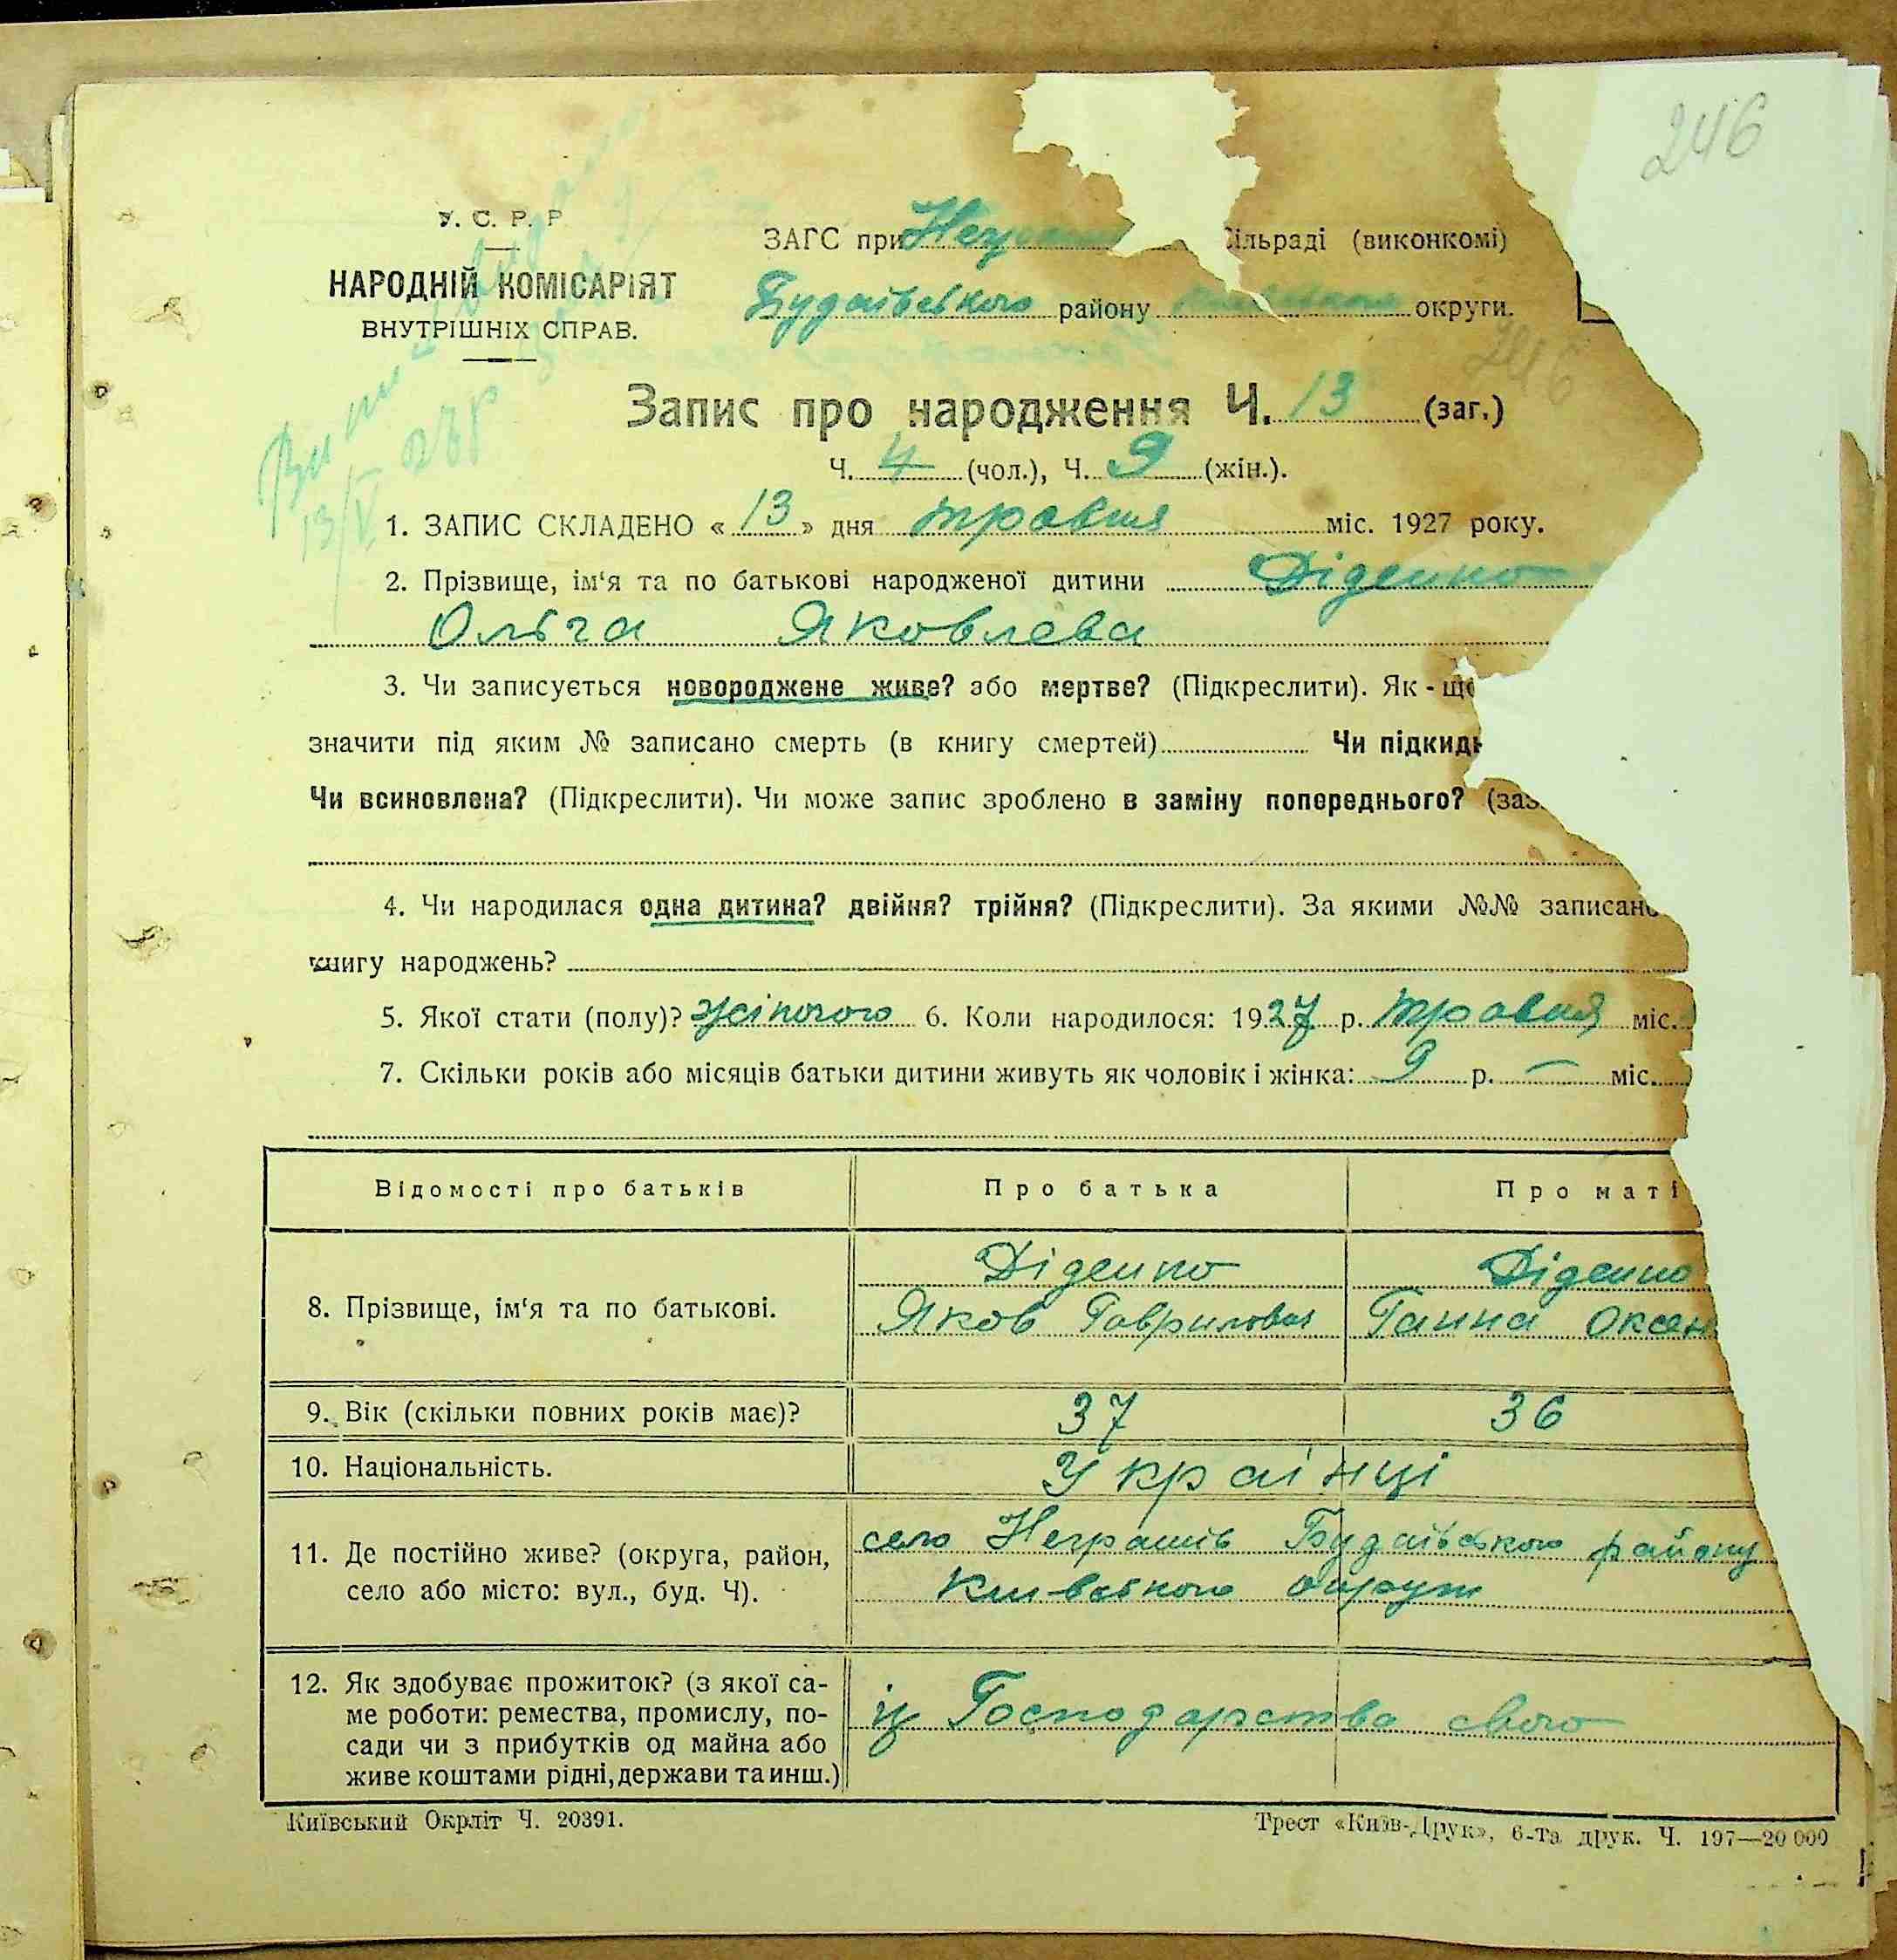 246
У. С. Р. Р
НАРОДНІЙ КОМІСАРІЯТ
ВНУТРІШНІХ СПРАВ.
ЗАГС при Сільраді (виконкомі)
Будаївського району округи.
246
Запис про народження Ч. 13 (заг.)
Ч. 4 (чол.), Ч. 9 (жін.).
13/V
1. ЗАПИС СКЛАДЕНО «13» дня травня міс. 1927 року.
2. Прізвище, ім'я та по батькові народженої дитини Діденко
Ольга Яковлева
3. Чи записується новороджене живе? або мертве? (Підкреслити). Як - що
значити під яким № записано смерть (в книгу смертей) Чи підкидь
Чи всиновлена? (Підкреслити). Чи може запис зроблено в заміну попереднього? (заз.
4. Чи народилася одна дитина? двійня? трійня? (Підкреслити). За якими №№ записано
книгу народжень?
5. Якої стати (полу)? жіночого 6. Коли народилося: 1927 р. травня міс.
7. Скільки років або місяців батьки дитини живуть як чоловік і жінка: 9 р. — міс.
Відомості про батьків Про батька Про маті
8. Прізвище, ім'я та по батькові. Діденко Діденко
Яков Гаврилович Ганна Оксен
9. Вік (скільки повних років має)? 37 36
10. Національність. Українці
11. Де постійно живе? (округа, район, село або місто: вул., буд. Ч). село Неграшів Будаївського району
Київського округи
12. Як здобуває прожиток? (з якої са-
ме роботи: ремества, промислу, по-
сади чи з прибутків од майна або
живе коштами рідні, держави та инш.) із Господарства свого
Київський Окрліт Ч. 20391.
Трест «Київ-Друк», 6-та друк. Ч. 197—20 000